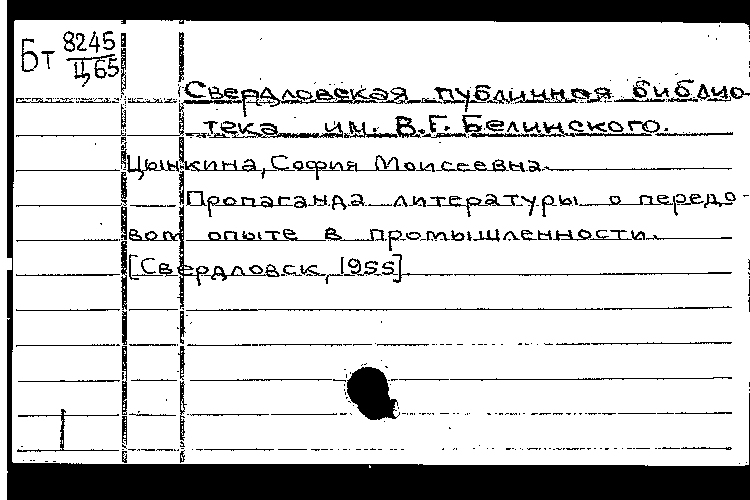 Бт 8245
Ц65
Свердловская публичная библио-
тека им. В.Г. Белинского.
Цынкина, София Моисеевна.
Пропаганда литературы о передо-
вом опыте в промышленности.
[Свердловск, 1955].